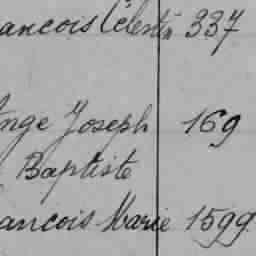 ancois Célestin 337
Ange Joseph 169
Baptiste
ancois Marie 1599